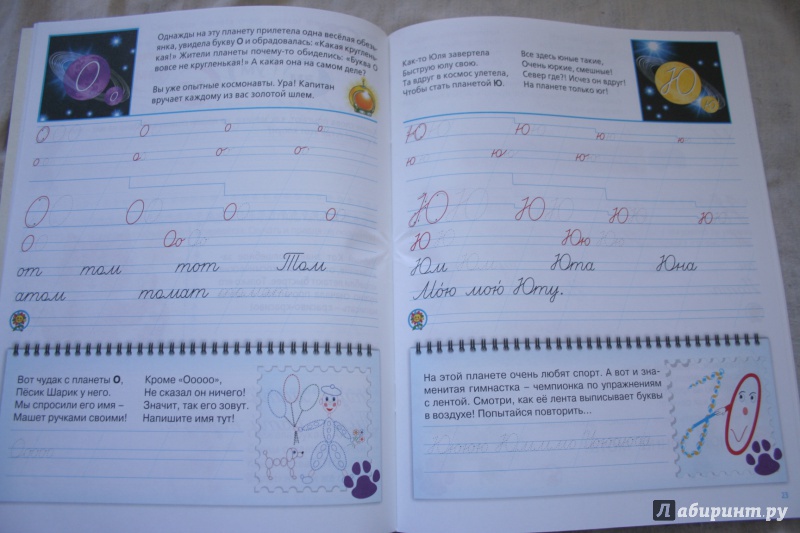 Однажды на эту планету прилетела одна весёлая обезь-
янка, увидела букву О и обрадовалась: «Какая круглень-
кая!» Жители планеты почему-то обиделись: «Буква О
вовсе не кругленькая!» А какая она на самом деле?
Вы уже опытные космонавты. Ура! Капитан
вручает каждому из вас золотой шлем.
О О
О О О О
о о о о
О О О О
О Оо Оо
от том тот Том
атом томат томат
Вот чудак с планеты О,
Пёсик Шарик у него.
Мы спросили его имя –
Машет ручками своими!
Кроме «Ооооо»,
Не сказал он ничего!
Значит, так его зовут.
Напишите имя тут!
Как-то Юля завертела
Быструю юлу свою.
Та вдруг в космос улетела,
Чтобы стать планетой Ю.
Все здесь юные такие,
Очень юркие, смешные!
Север где?! Исчез он вдруг!
На планете только юг!
Ю
Ю Ю ю ю
ю ю ю
Ю Ю Ю Ю
Ю Юю
Юм Юта Юна
Мою мою Юту.
На этой планете очень любят спорт. А вот и зна-
менитая гимнастка – чемпионка по упражнениям
с лентой. Смотри, как её лента выписывает буквы
в воздухе! Попытайся повторить...
Лабиринт.ру